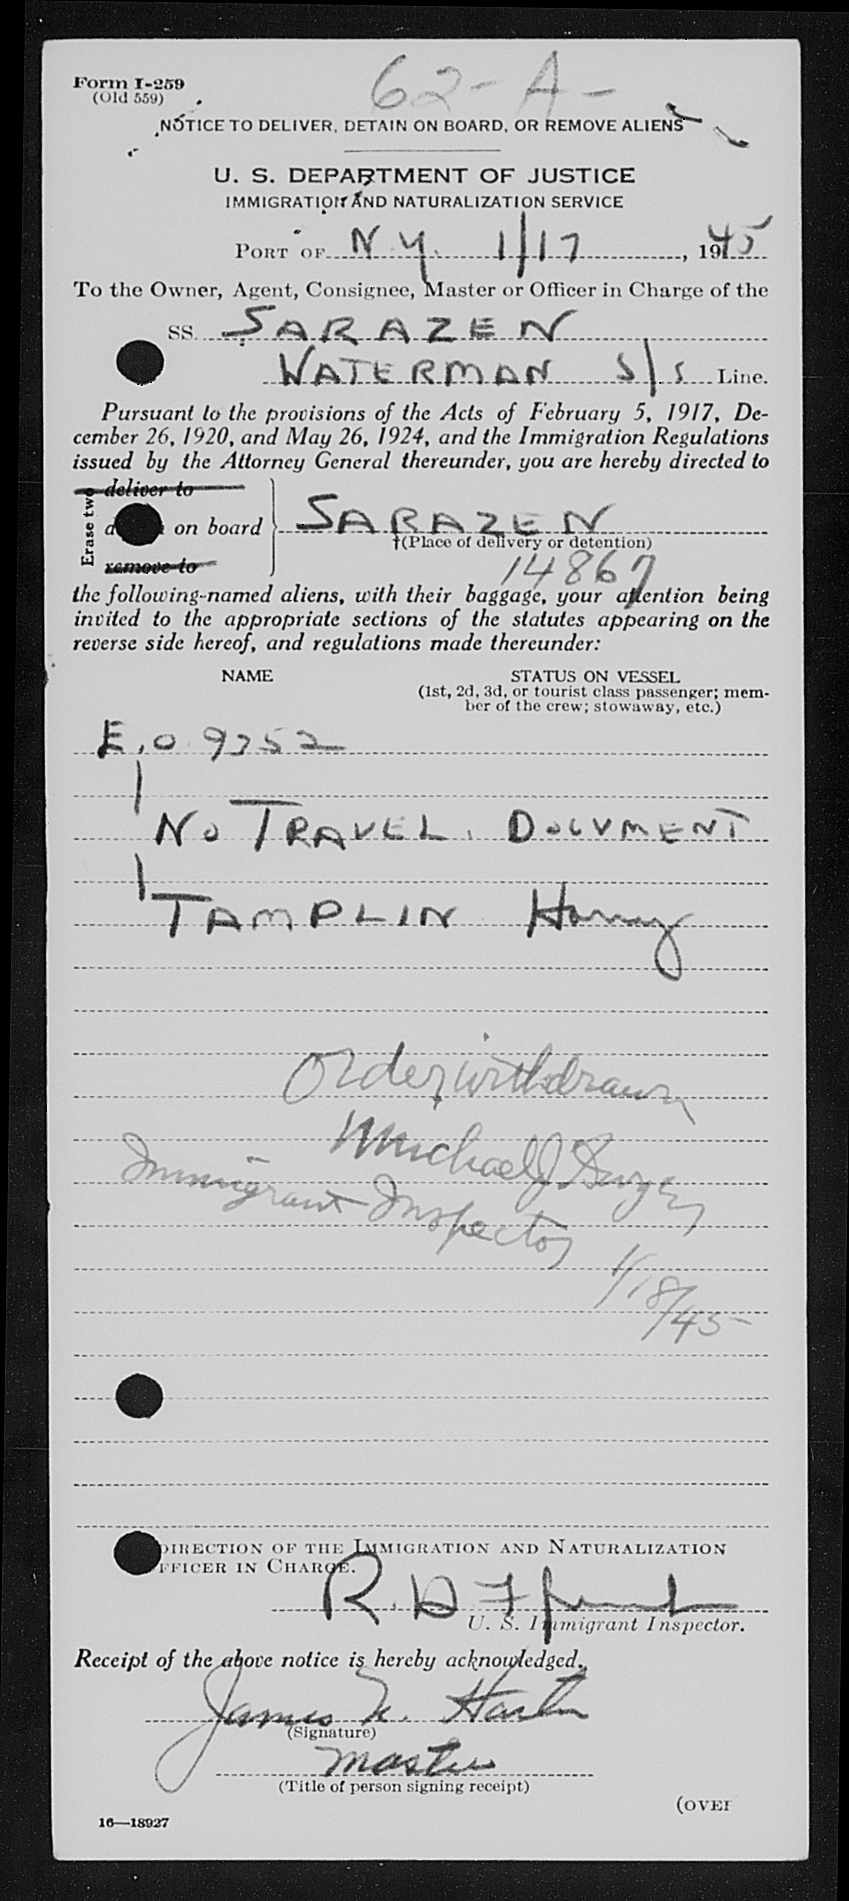 Form I-259
(Old 559)
62-A-
NOTICE TO DELIVER, DETAIN ON BOARD, OR REMOVE ALIENS
U. S. DEPARTMENT OF JUSTICE
IMMIGRATION AND NATURALIZATION SERVICE
PORT OF N.Y. 1/17, 1945
To the Owner, Agent, Consignee, Master or Officer in Charge of the
SS. SARAZEN
WATERMAN S/S Line.
Pursuant to the provisions of the Acts of February 5, 1917, De-
cember 26, 1920, and May 26, 1924, and the Immigration Regulations
issued by the Attorney General thereunder, you are hereby directed to
deliver to
Erase two
on board SARAZEN
†(Place of delivery or detention)
remove to
14867
the following-named aliens, with their baggage, your attention being
invited to the appropriate sections of the statutes appearing on the
reverse side hereof, and regulations made thereunder:
NAME STATUS ON VESSEL
(1st, 2d, 3d, or tourist class passenger; mem-
ber of the crew; stowaway, etc.)
E.O. 9352
NO TRAVEL. DOCUMENT
TAMPLIN Harry
Order withdrawn
Michael J.
Immigrant Inspector
1/18/45
DIRECTION OF THE IMMIGRATION AND NATURALIZATION
OFFICER IN CHARGE.
R.
U. S. Immigrant Inspector.
Receipt of the above notice is hereby acknowledged.
James
(Signature)
Master
(Title of person signing receipt)
(OVER
16—18927